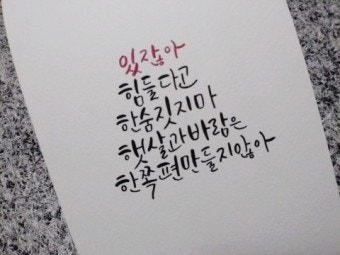 있잖아
힘들다고
한숨짓지마
햇살과바람은
한쪽편만들지않아